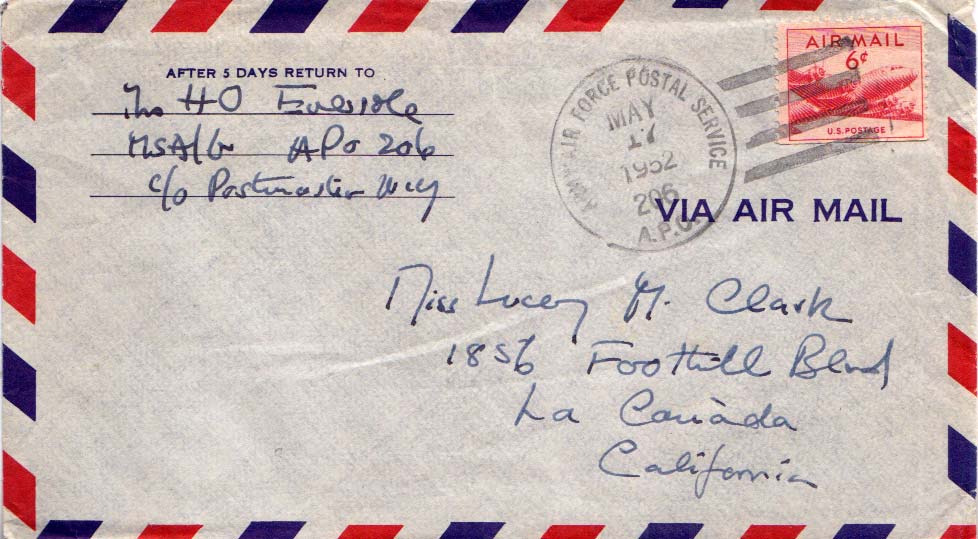 AFTER 5 DAYS RETURN TO
HO Eversole
MSA/G APO 206
c/o Postmaster NY
ARMY-AIR FORCE POSTAL SERVICE
MAY
17
1952
206
A.P.O.
AIR MAIL
6¢
U.S. POSTAGE
VIA AIR MAIL
Miss Lucey M. Clark
1856 Foothill Blvd
La Cañada
California